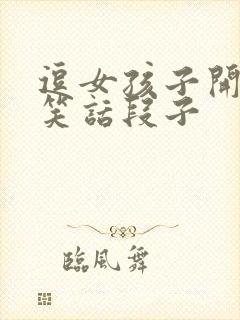 逗女孩子開
笑話段子
臨風舞